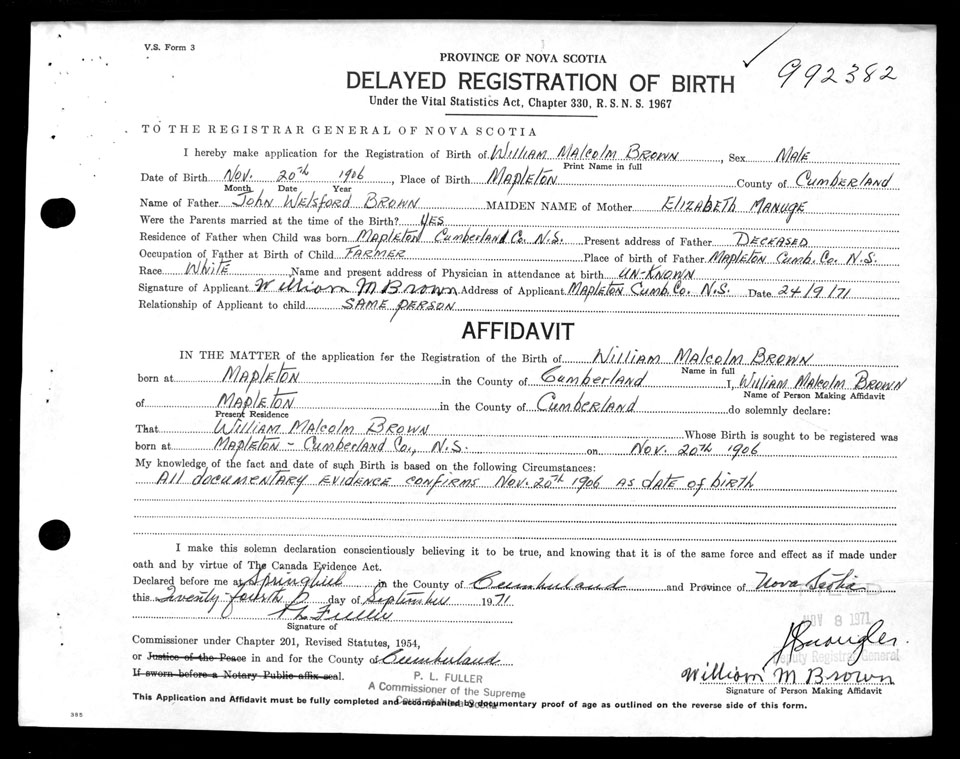 V.S. Form 3
PROVINCE OF NOVA SCOTIA
992382
DELAYED REGISTRATION OF BIRTH
Under the Vital Statistics Act, Chapter 330, R.S.N.S. 1967
TO THE REGISTRAR GENERAL OF NOVA SCOTIA
I hereby make application for the Registration of Birth of William Malcolm Brown, Sex Male
Print Name in full
Date of Birth Nov. 20th 1906, Place of Birth Mapleton County of Cumberland
Month Date Year
Name of Father John Welsford Brown MAIDEN NAME of Mother Elizabeth Manuge
Were the Parents married at the time of the Birth? Yes
Residence of Father when Child was born Mapleton Cumberland Co. N.S. Present address of Father Deceased
Occupation of Father at Birth of Child Farmer Place of birth of Father Mapleton Cumb. Co. N.S.
Race White Name and present address of Physician in attendance at birth un-known
Signature of Applicant William M Brown Address of Applicant Mapleton Cumb. Co. N.S. Date 24/9/71
Relationship of Applicant to child same person
AFFIDAVIT
IN THE MATTER of the application for the Registration of the Birth of William Malcolm Brown
Name in full
born at Mapleton in the County of Cumberland I, William Malcolm Brown
Name of Person Making Affidavit
of Mapleton in the County of Cumberland do solemnly declare:
Present Residence
That William Malcolm Brown Whose Birth is sought to be registered was
born at Mapleton - Cumberland Co., N.S. on Nov. 20th 1906
My knowledge of the fact and date of such Birth is based on the following Circumstances:
All documentary evidence confirms Nov. 20th 1906 as date of birth
I make this solemn declaration conscientiously believing it to be true, and knowing that it is of the same force and effect as if made under
oath and by virtue of The Canada Evidence Act.
Declared before me at Springhill in the County of Cumberland and Province of Nova Scotia
this Twenty-fourth day of September 1971
NOV 8 1971
P L Fuller
Signature of
Commissioner under Chapter 201, Revised Statutes, 1954,
or Justice of the Peace in and for the County of Cumberland
Deputy Registrar General
If sworn before a Notary Public affix seal.
P. L. FULLER
William M Brown
A Commissioner of the Supreme
Signature of Person Making Affidavit
Court of Nova Scotia
This Application and Affidavit must be fully completed and accompanied by documentary proof of age as outlined on the reverse side of this form.
385